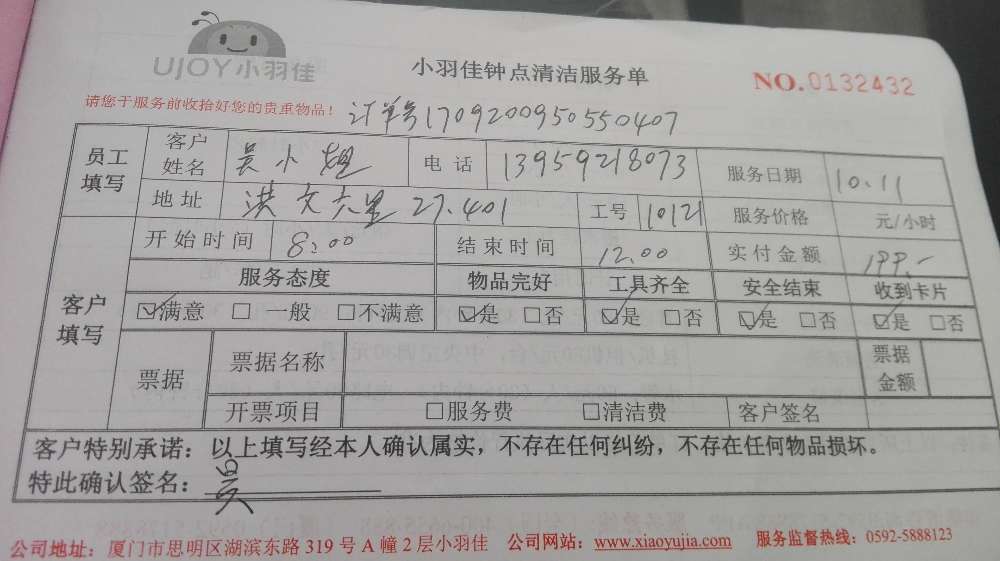 UJOY小羽佳
小羽佳钟点清洁服务单
NO.0132432
请您于服务前收拾好您的贵重物品！
订单号170920095055040​7
员工填写 客户姓名 吴小姐 电话 13959218073 服务日期 10.11
地址 洪文六里27.401 工号 10121 服务价格 元/小时
客户填写 开始时间 8:00 结束时间 12.00 实付金额 199.-
服务态度 物品完好 工具齐全 安全结束 收到卡片
☑满意 □一般 □不满意 ☑是 □否 ☑是 □否 ☑是 □否 ☑是 □否
票据 票据名称 票据金额
开票项目 □服务费 □清洁费 客户签名
客户特别承诺：以上填写经本人确认属实，不存在任何纠纷，不存在任何物品损坏。
特此确认签名：吴
公司地址：厦门市思明区湖滨东路319号A幢2层小羽佳 公司网站：www.xiaoyujia.com 服务监督热线：0592-5888123